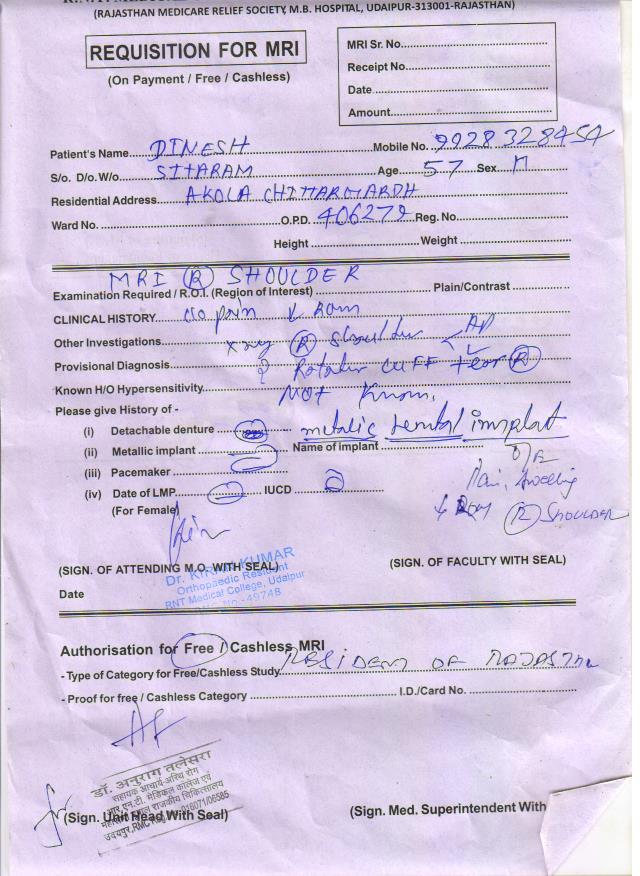 (RAJASTHAN MEDICARE RELIEF SOCIETY, M.B. HOSPITAL, UDAIPUR-313001-RAJASTHAN)
REQUISITION FOR MRI
(On Payment / Free / Cashless)
MRI Sr. No.
Receipt No.
Date
Amount
Patient's Name DINESH Mobile No. 9928328454
S/o. D/o. W/o SITARAM Age 57 Sex M
Residential Address AKOLA CHITTARGARDH
Ward No. O.P.D. 406279 Reg. No.
Height Weight
MRI (R) SHOULDER
Examination Required / R.O.I. (Region of Interest) Plain/Contrast
CLINICAL HISTORY c/o pain ↓ ROM
Other Investigations xray (R) Shoulder AP
Provisional Diagnosis ? Rotator CUFF tear (R)
Known H/O Hypersensitivity NOT Known.
Please give History of -
(i) Detachable denture metalic dental implat
(ii) Metallic implant Name of implant
(iii) Pacemaker O/E
(iv) Date of LMP IUCD Pain, swelling
(For Female) ↓ ROM (R) SHOULDER
(SIGN. OF ATTENDING M.O. WITH SEAL) (SIGN. OF FACULTY WITH SEAL)
Dr. KUMAR
Orthopaedic Resident
RNT Medical College, Udaipur
No.-49748
Date
Authorisation for Free / Cashless MRI
- Type of Category for Free/Cashless Study RESIDENT OF RAJASTHAN
- Proof for free / Cashless Category I.D./Card No.
डॉ. अनुराग तलेसरा
सहायक आचार्य-अस्थि रोग
आर.एन.टी. मेडिकल कॉलेज एवं
राजकीय चिकित्सालय
उदयपुर, RMC 016071/06585
(Sign. Unit Head With Seal) (Sign. Med. Superintendent With